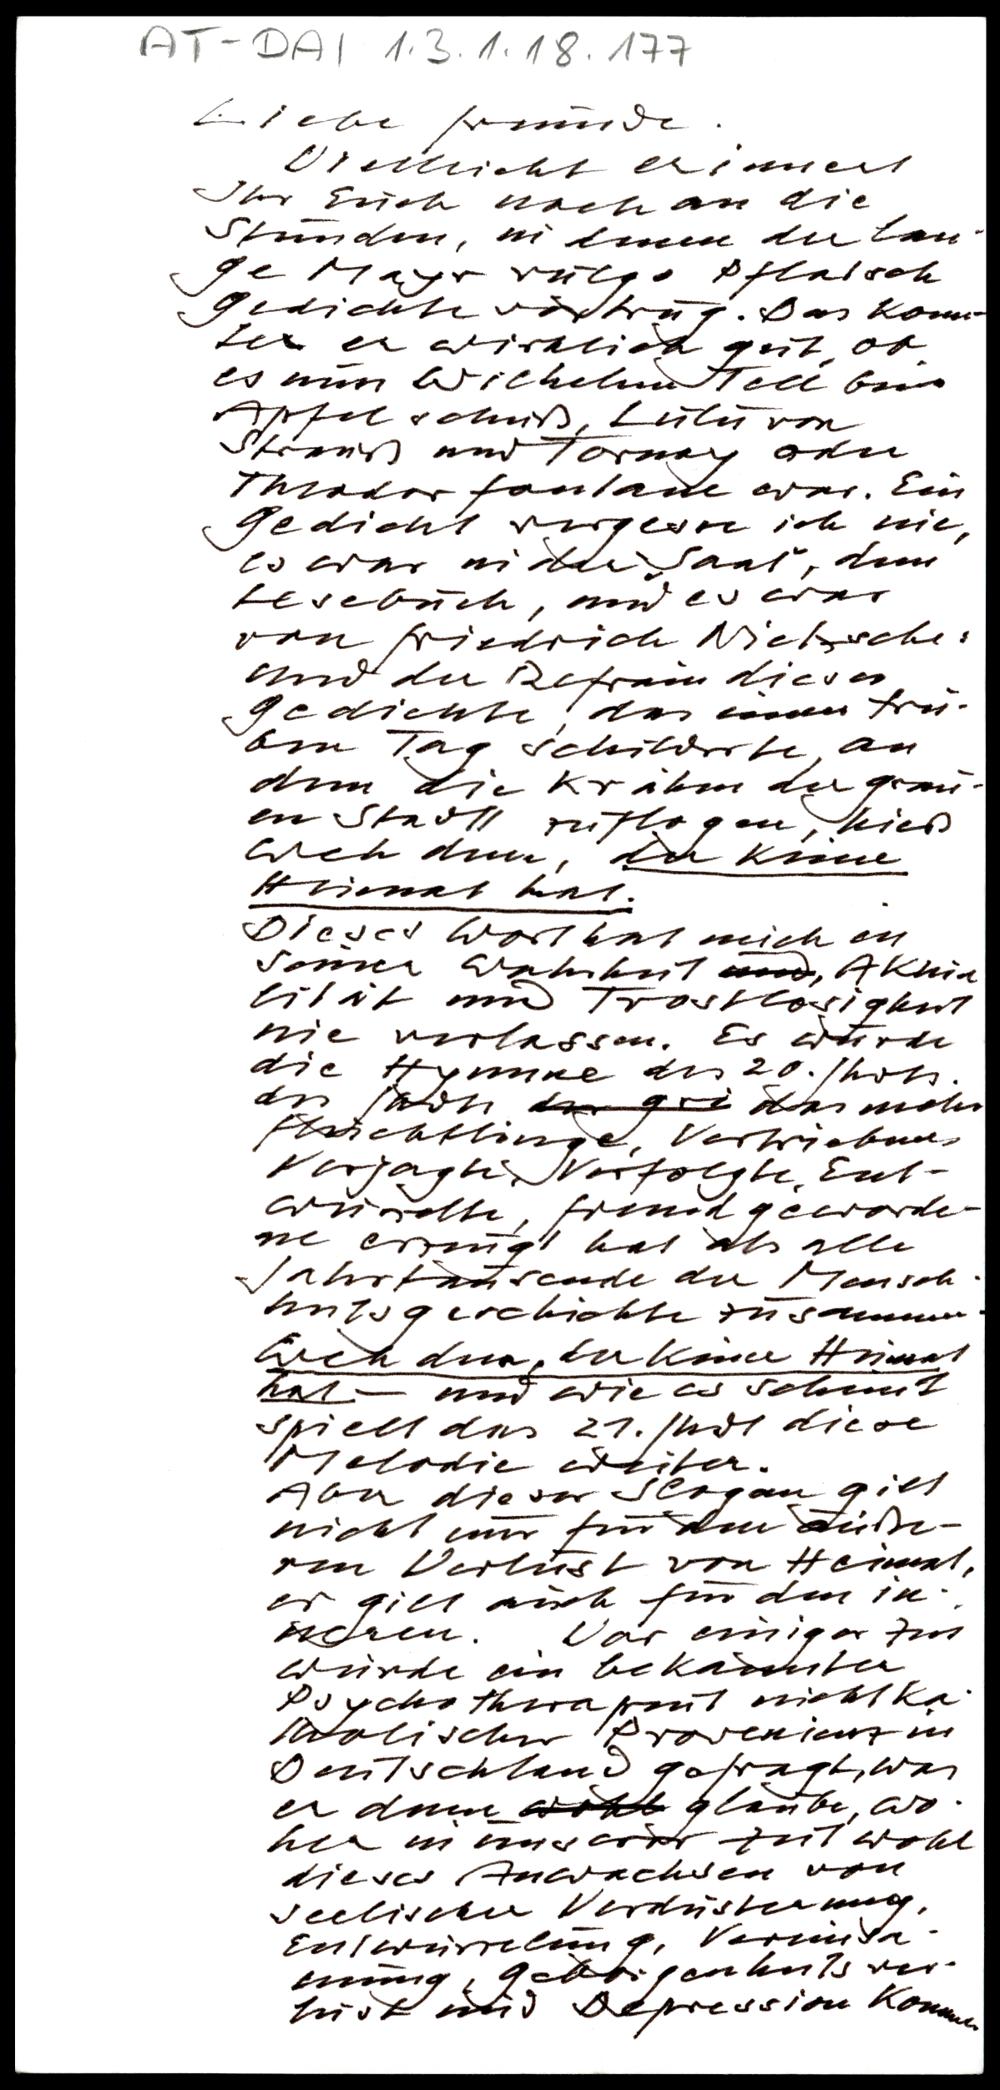 AT-DAI 1.3.1.18.177
Liebe Freunde.
Vielleicht erinnert
Ihr Euch noch an die
Stunden, in denen der lan-
ge Mayr vulgo Pflatsch
Gedichte vortrug. Das konn-
te er wirklich gut, ob
es nun Wilhelm Tell beim
Apfelschuß, Lulu von
Strauß und Torney oder
Theodor Fontane war. Ein
Gedicht vergesse ich nie,
es war in der "Saat", dem
Lesebuch, und es war
von Friedrich Nietzsche:
und der Refrain dieses
Gedichts, das einen trü-
ben Tag schilderte, an
dem die Krähen der grau-
en Stadt zuflogen, hieß
Weh dem, der keine
Heimat hat.
Dieses Wort hat mich in
seiner Wahrheit und, Aktua
lität und Trostlosigkeit
nie verlassen. Es wurde
die Hymne des 20. Jhdts.
des Jhdts der gri das mehr
Flüchtlinge, Vertriebene
Verjagte, Verfolgte, Ent-
wurzelte, fremd geworde-
ne erzeugt hat als alle
Jahrtausende der Mensch-
heitsgeschichte zusammen.
Weh dem, der keine Heimat
hat – und wie es scheint
spielt das 21. Jhdt diese
Melodie weiter.
Aber dieser Slogan gilt
nicht nur für den äuße-
ren Verlust von Heimat,
er gilt auch für den in-
neren. Vor einiger Zeit
wurde ein bekannter
Psychotherapeut nicht ka-
tholischer Provenienz in
Deutschland gefragt, was
er denn wohl glaube, wo-
her in unserer Zeit wohl
dieses Anwachsen von
seelischer Verdüsterung,
Entwurzelung, Vereinsa-
mung, Geborgenheitsver-
lust und Depression komme